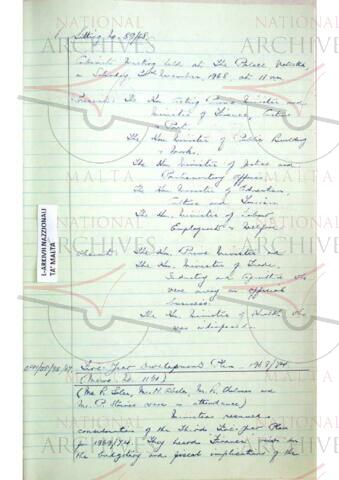 Sitting No. 59/68.
Cabinet Meeting held at The Palace Valletta
on Saturday, November, 1968 at 11 am
Present: The Hon. Acting Prime Minister and
Minister of Finance, Customs
& Port.
The Hon. Minister of Public Building
& Works.
The Hon. Minister of Justice and
Parliamentary Affairs
The Hon. Minister of Education,
Culture and Tourism
The Hon. Minister of Labour
Employment & Welfare
Absent: The Hon. Prime Minister and
The Hon. Minister of Trade,
Industry and Agriculture who
were away on official
business.
The Hon. Minister of Health who
was indisposed.
Five-Year Development Plan - 1969/74
(Memo. No. 1191)
(Mr. R. Soler, Mr. and
Mr. were in attendance)
Ministers resumed
consideration of the Third Five-Year Plan
for 1969/74. They heard Finance's views on
the budgetary and fiscal implications of the
L-ARKIVJI NAZZJONALI
TA' MALTA
NATIONAL
ARCHIVES
MALTA